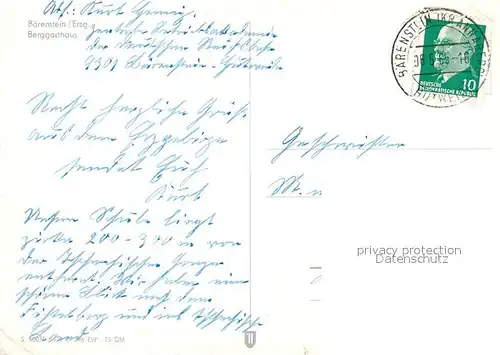 Abs: Kurt
Bärenstein / Erzg.
Berggasthaus
der Deutschen Reichsbahn
9301 Bärenstein-
Recht herzliche Grüße
aus dem Erzgebirge
sendet Euch
Kurt
Unsere Schule liegt
zirka 200-300 m von
der Tschechischen Grenze
entfernt. Wir haben eine
schöne Blick nach dem
Fichtelberg und ins Tschechische
Land
BÄRENSTEIN (KR ANNABERG)
DEUTSCHE
DEMOKRATISCHE REPUBLIK
10
Geschwister
M
privacy protection
Datenschutz
EVP -,15 DM